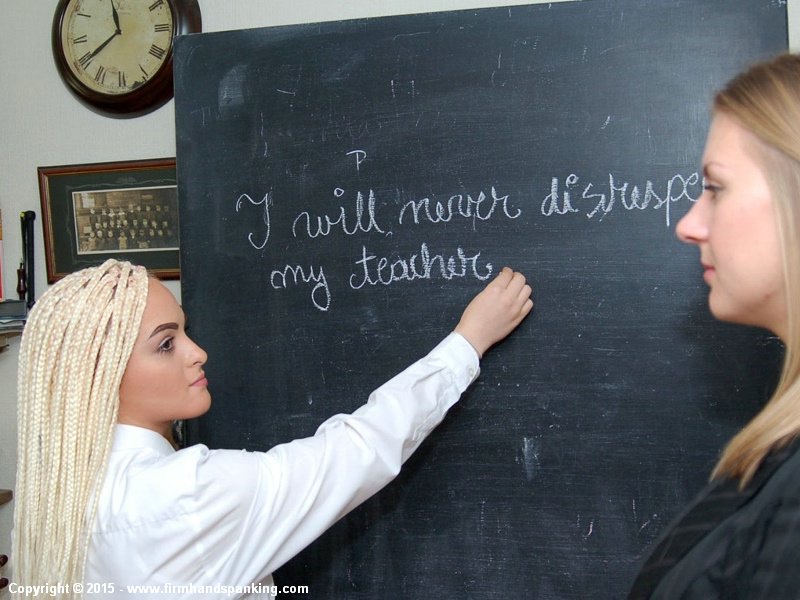 P
I will never disrespe
my teacher
Copyright © 2015 - www.firmhandspanking.com